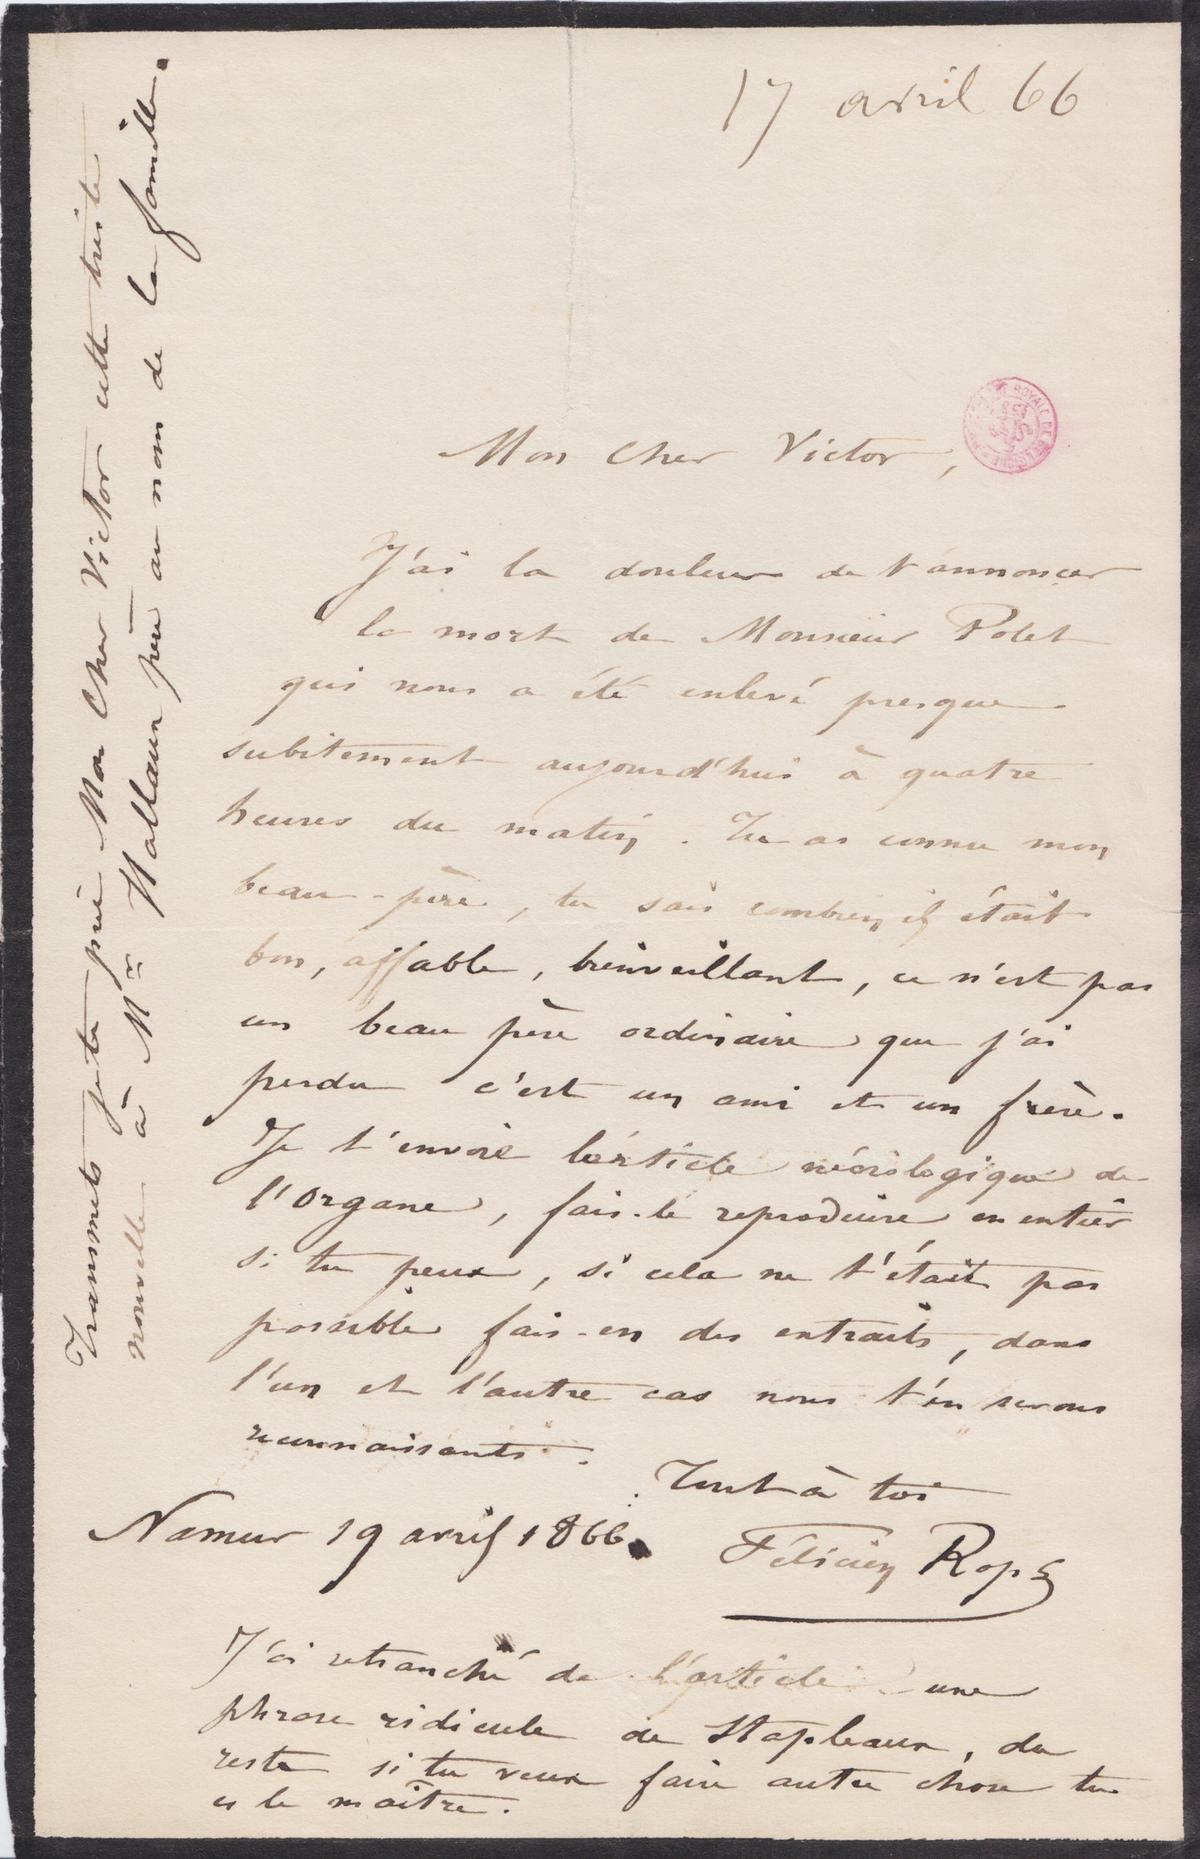 17 avril 66
Mon Cher Victor,
J'ai la douleur de t'annoncer
la mort de Monsieur Polet
qui nous a été enlevé presque
subitement aujourd'hui à quatre
heures du matin. Tu as connu mon
beau-père, tu sais combien il était
bon, affable, bienveillant, ce n'est pas
un beau père ordinaire que j'ai
perdu c'est un ami et un frère.
Je t'envoie l'article nécrologique de
l'Organe, fais-le reproduire en entier
si tu peux, si cela ne t'était pas
possible fais-en des extraits, dans
l'un et l'autre cas nous t'en serons
reconnaissants.
Tout à toi
Namur 19 avril 1866.
Félicien Rops
J'ai retranché de l'article une
phrase ridicule de Stapleaux, du
reste si tu veux faire autre chose tu
es le maître.
Transmets je te prie Mon Cher Victor cette triste
nouvelle à Mr Hallaux père au nom de la famille.
ROYALE DE BELGIQUE